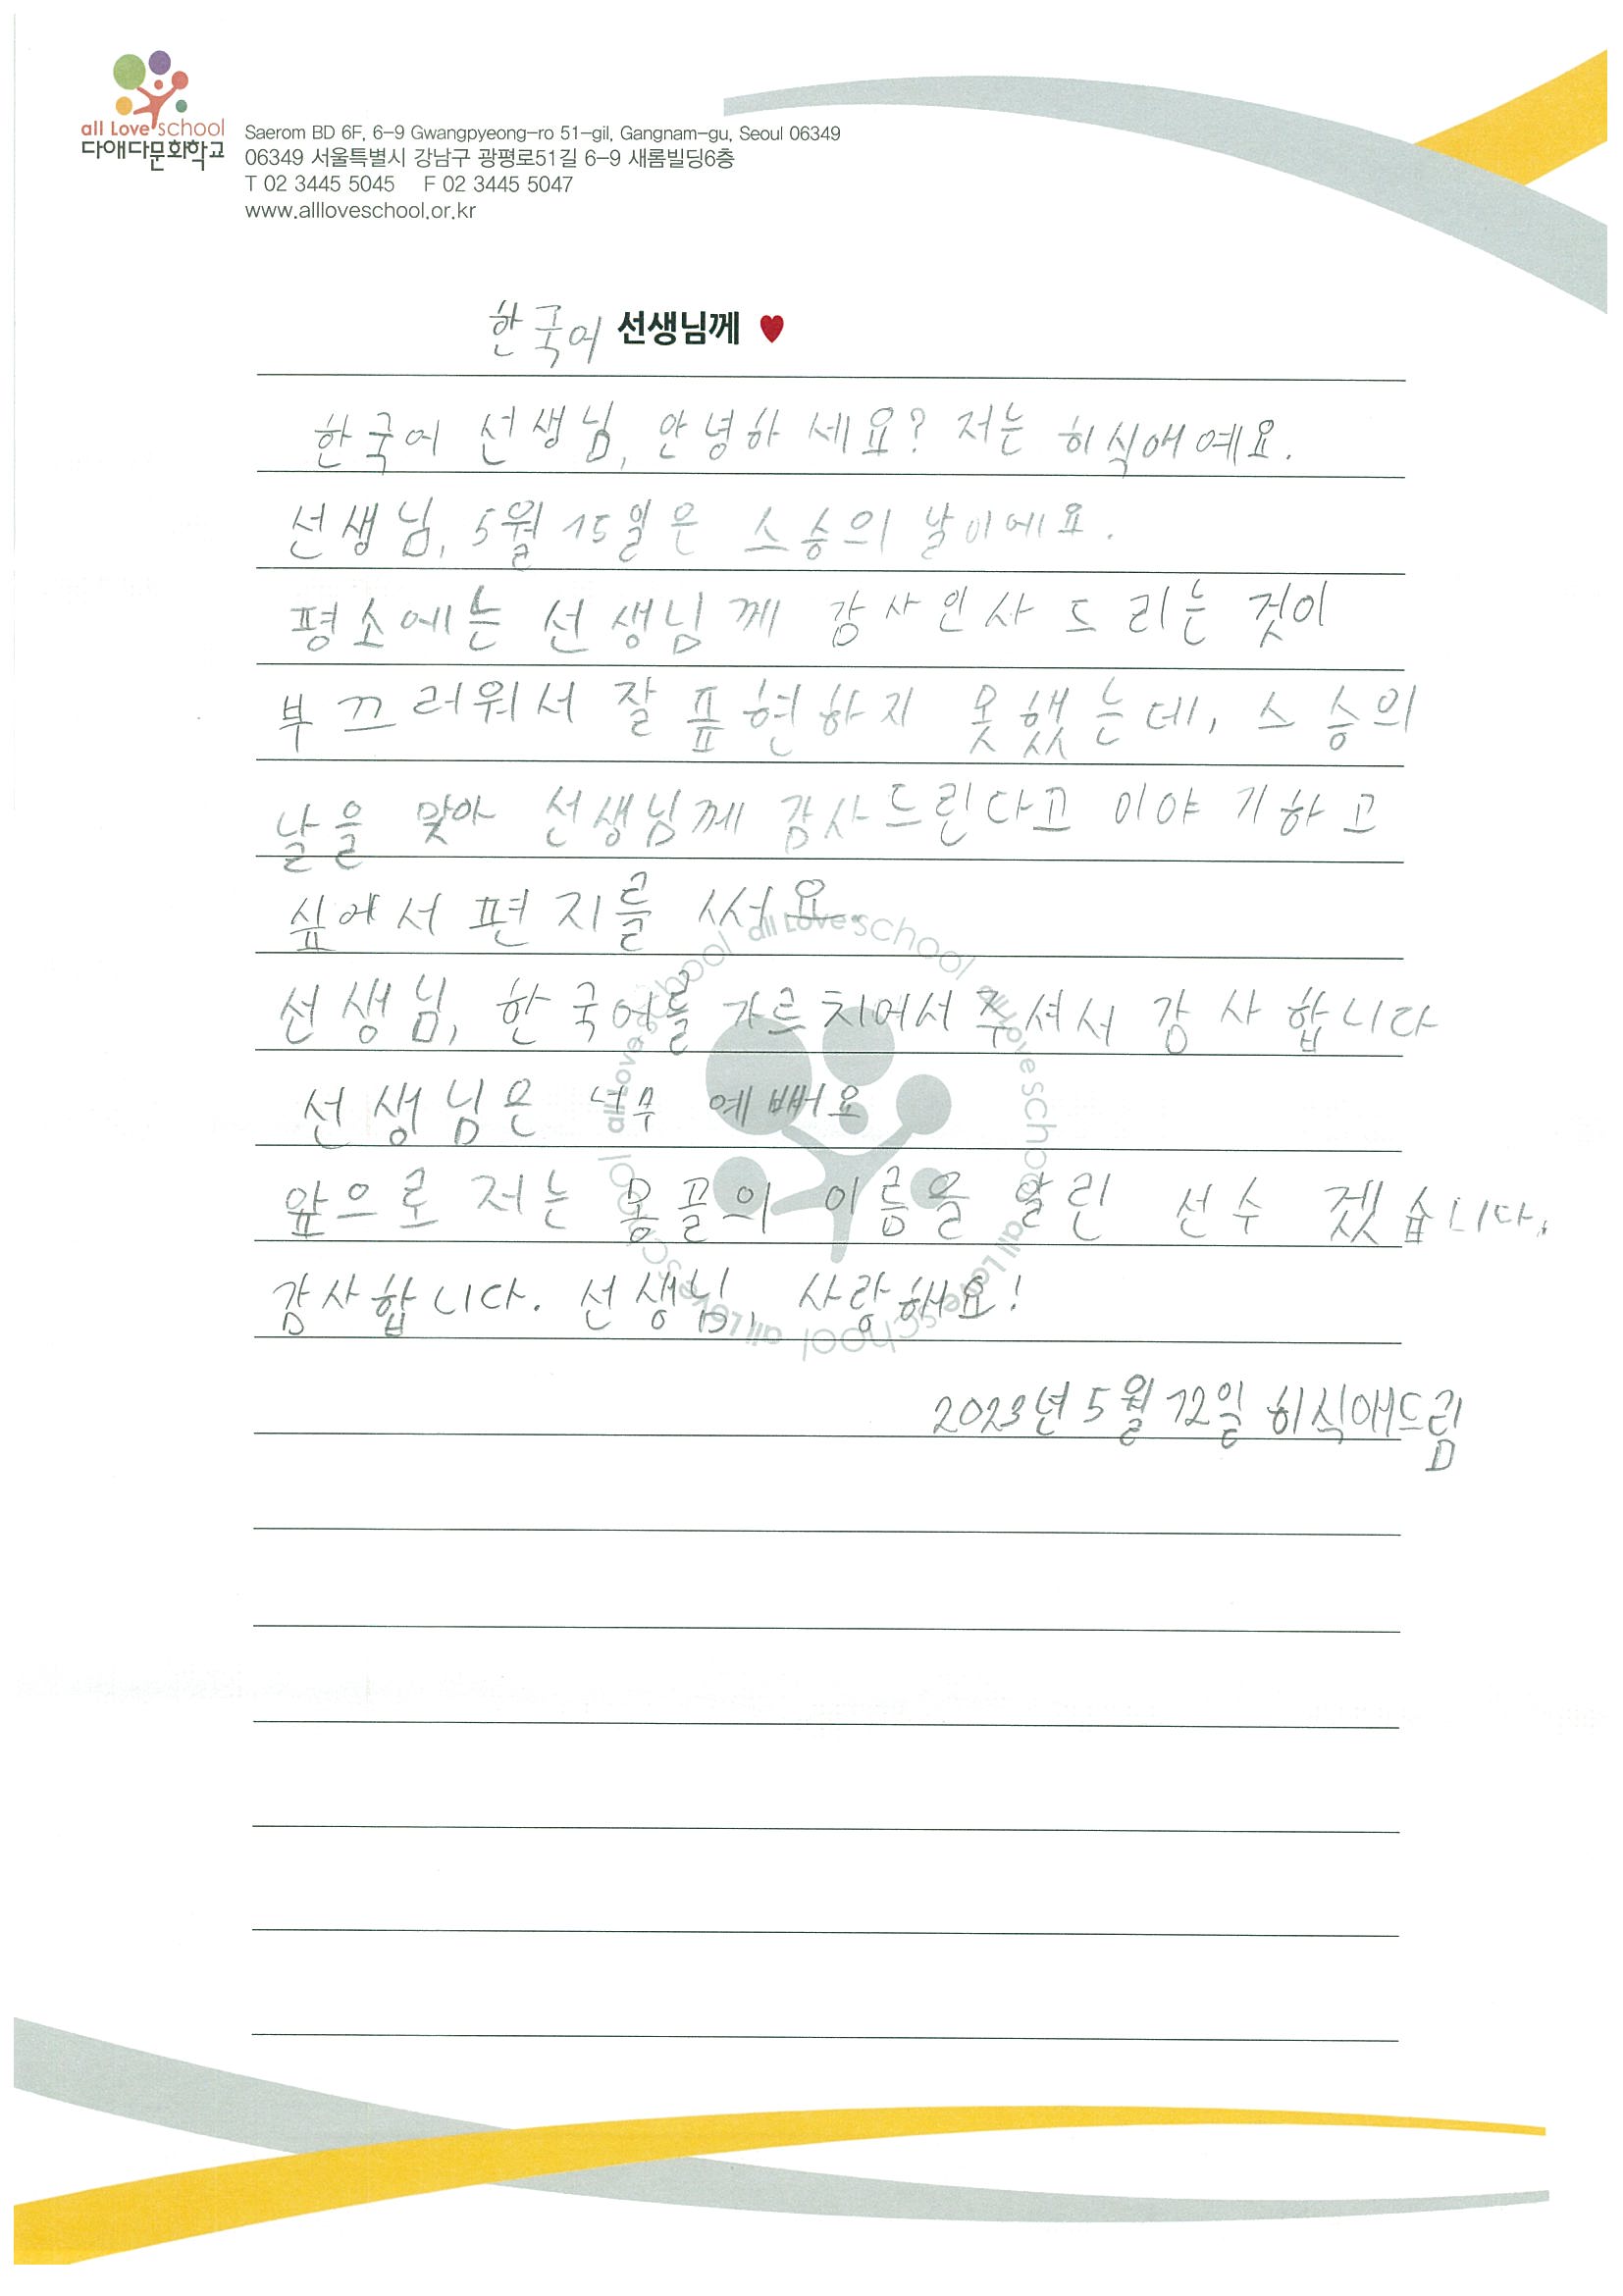 all Love school
다애다문화학교
Saerom BD 6F, 6-9 Gwangpyeong-ro 51-gil, Gangnam-gu, Seoul 06349
06349 서울특별시 강남구 광평로51길 6-9 새롬빌딩6층
T 02 3445 5045 F 02 3445 5047
www.allloveschool.or.kr
한국어 선생님께 ♥
한국어 선생님, 안녕하세요? 저는 히식애예요.
선생님, 5월 15일은 스승의 날이에요.
평소에는 선생님께 감사인사 드리는 것이
부끄러워서 잘 표현하지 못했는데, 스승의
날을 맞아 선생님께 감사드린다고 이야기하고
싶에서 편지를 써요.
선생님, 한국어를 가르치어서 주셔서 감사합니다
선생님은 너무 예뻐요
앞으로 저는 몽골의 이름을 알린 선수 겠습니다.
감사합니다. 선생님, 사랑해요!
2023년 5월 12일 히식애드림
all Love school all Love school all Love school all Love school all Love school